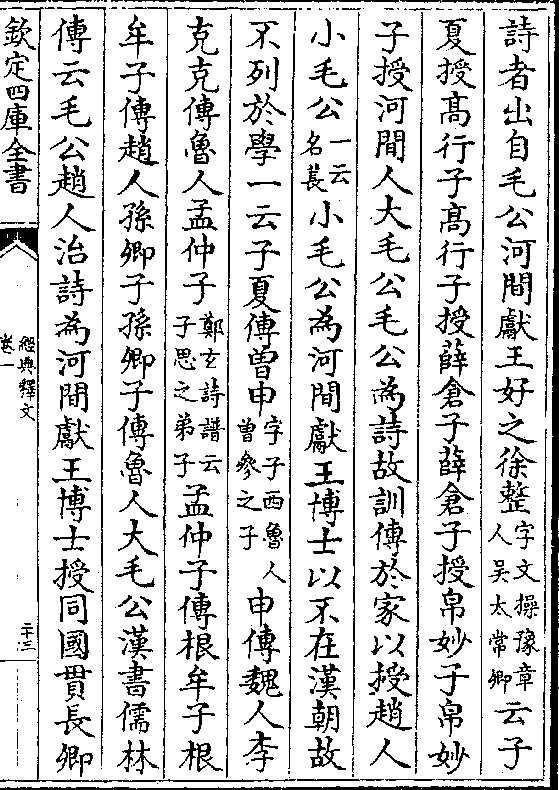 詩者出自毛公河間獻王好之徐整字文操豫章人吳太常卿云子
夏授髙行子髙行子授薛倉子薛倉子授帛妙子帛妙
子授河間人大毛公毛公為詩故訓傳於家以授趙人
小毛公一云名萇小毛公為河間獻王博士以不在漢朝故
不列於學一云子夏傳曽申字子西魯人曽參之子申傳魏人李
克克傳魯人孟仲子鄭玄詩譜云子思之弟子孟仲子傳根牟子根
牟子傳趙人孫卿子孫卿子傳魯人大毛公漢書儒林
傳云毛公趙人治詩為河間獻王博士授同國貫長卿
欽定四庫全書
經典釋文
卷一
二十三